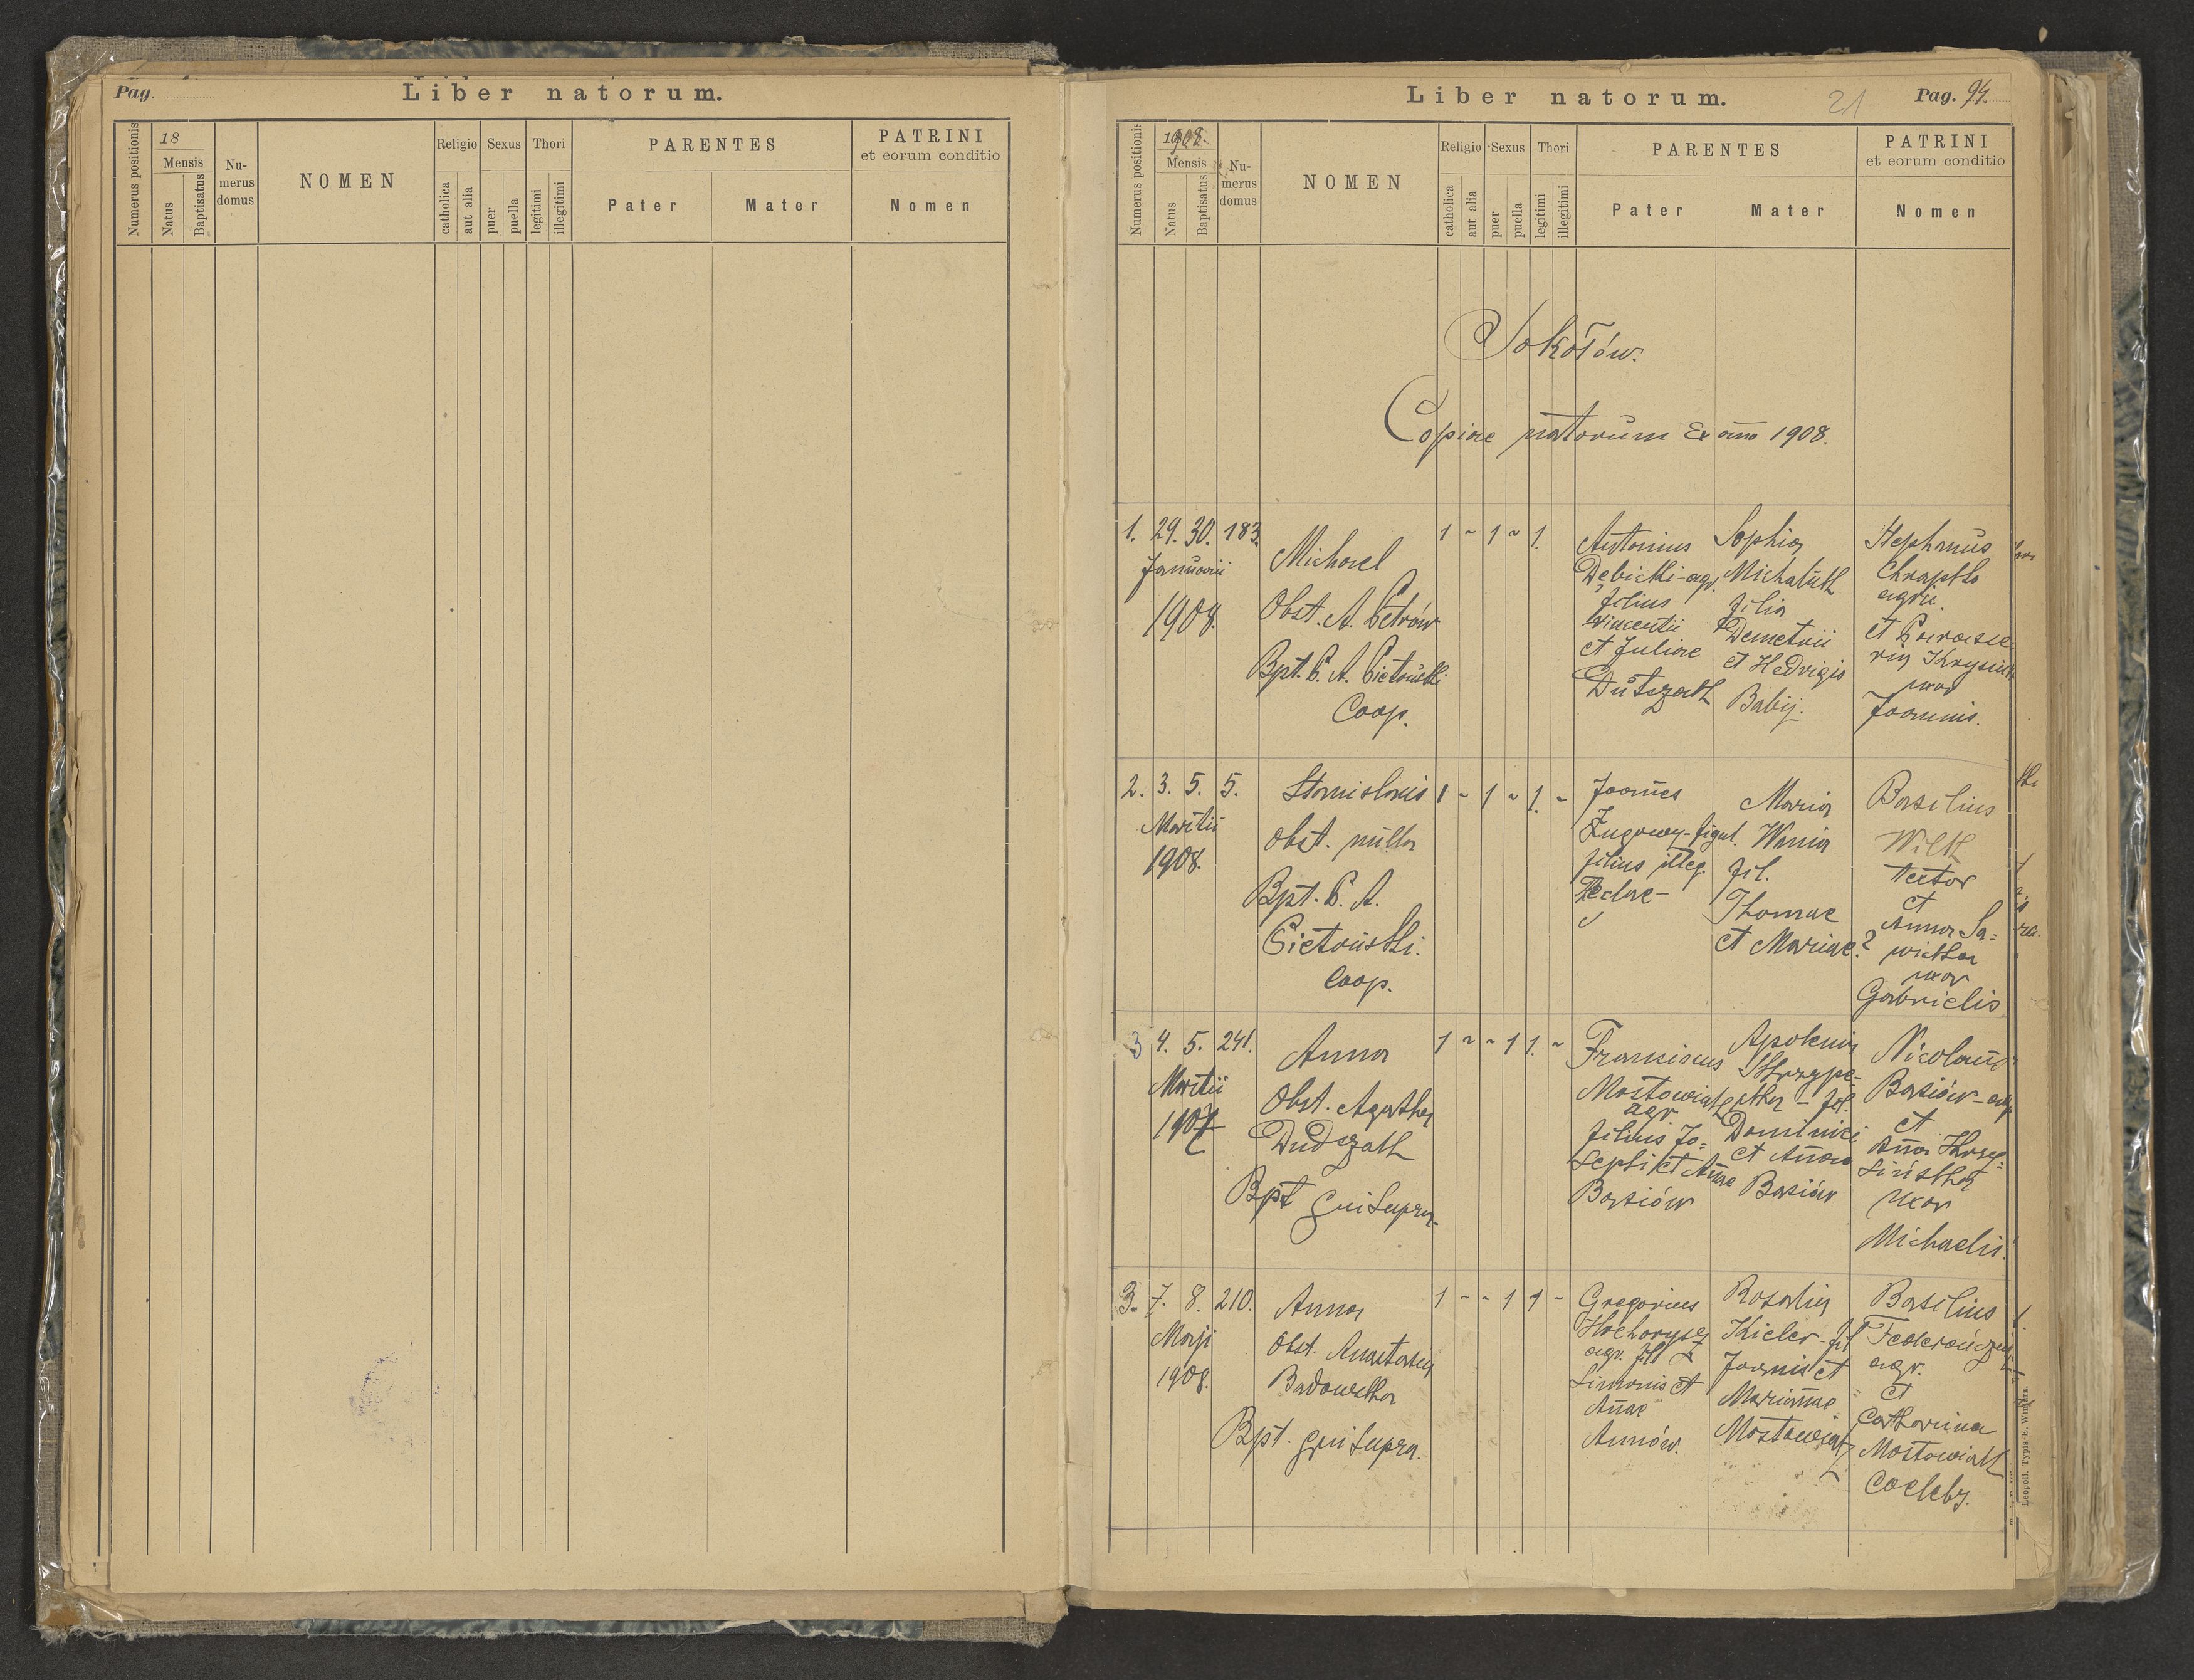 Pag.
Liber natorum.
Numerus positionis
18
Mensis
Natus
Baptisatus
Nu-
merus
domus
NOMEN
Religio
catholica
aut alia
Sexus
puer
puella
Thori
legitimi
illegitimi
PARENTES
Pater
Mater
PATRINI
et eorum conditio
Nomen
Liber natorum.
21
Pag. 94.
Numerus positionis
1908.
Mensis
Natus
Baptisatus
Nu-
merus
domus
NOMEN
Religio
catholica
aut alia
Sexus
puer
puella
Thori
legitimi
illegitimi
PARENTES
Pater
Mater
PATRINI
et eorum conditio
Nomen
Sokołów.
Copiae natorum Ex anno 1908.
1. 29. 30. 183.
Januarii
1908.
Michael
Obst. A. Petrów
Bpt. P. A. Pietruski
Coop.
1 ~ 1 ~ 1.
Antonius
Dębicki - agr.
filius
Vincentii
et Juliae
Dutszak
Sophia
Michaluk
filia
Demetrii
et Hedvigis
Babij.
Stephanus
Chrapko
agr.
et Parasce
ria
uxor
Joannis.
2. 3. 5. 5.
Martii
1908.
Stanislaus
Obst. nulla
Bpt. P. A.
Pietruski.
Coop.
1 ~ 1 ~ 1. ~
Joannes
Zugowy - figul.
filius illeg.
Teclae -
Maria
Wania
fil.
Thomae
et Mariae?
Basilius
Wilk
et
Anna Sa=
wicka
uxor
Gabrielis
3 4. 5. 241.
Martii
1907
Anna
Obst. Agatha
Dudszak
Bpt qui supra.
1 ~ ~ 1 1. ~
Franciscus
Mostowiak
agr
filius Jo=
sephi et Annae
Basiów
Apolonia
Skrzype-
cka - fil.
Dominici
et Anna
Basiów
Nicolaus
Basiów - agr
et
Anna Krze=
sińska
uxor
Michaelis.
3. 7. 8. 210.
Maji
1908.
Anna
Obst. Anastasia
Badowska
Bpt. qui supra.
1 - - 1 1 -
Gregorius
agr. fil
Simonis et
Annae
Annów.
Rosalia
Kieler - fil
Joannis et
Mariannae
Mostowiak
Basilius
agr.
et
Catharina
Mostowiak
Coelebs.
Leopoli. Typis E. Winiarz.